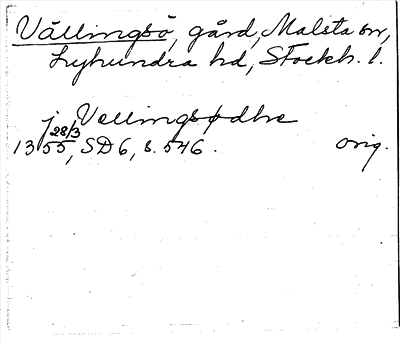 Vällingsö, gård, Malsta sn,
Lyhundra hd, Stockh. l.
j Vællingsødhe
1355 28/3, SD 6, s. 546. orig.